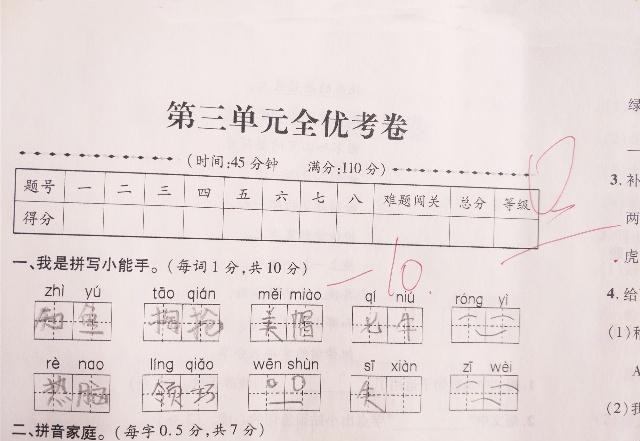 第三单元全优考卷
(时间:45分钟 满分:110分)
题号 一 二 三 四 五 六 七 八 难题闯关 总分 等级
得分
一、我是拼写小能手。(每词1分,共10分) -10.
zhì yú tāo qián měi miào qí niú róng yì
知鱼 掏抢 美帽 七牛
rè nao líng qiǎo wēn shùn sī xiàn zī wèi
热脑 领巧 失
二、拼音家庭。(每字0.5分,共7分)
绿
3. 补
两
虎
4. 给
(1)
A
(2)我